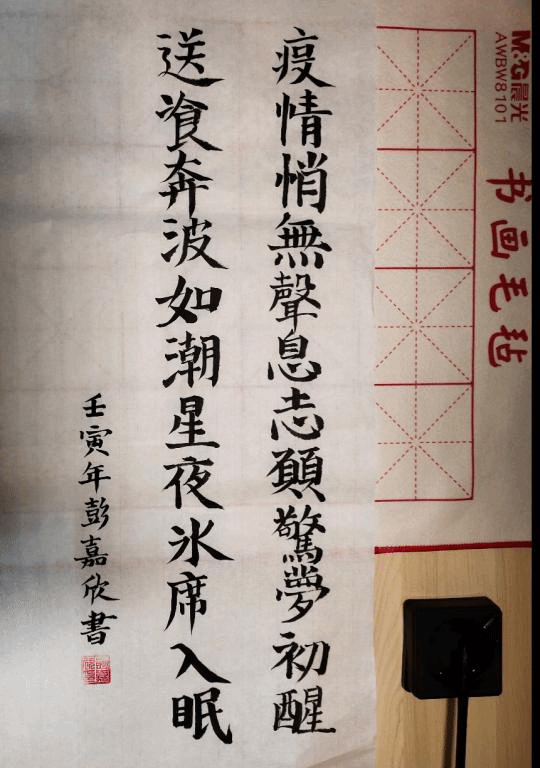 疫情悄無聲息志願驚夢初醒
送飡奔波如潮星夜氷席入眠
壬寅年彭嘉欣書
M&G晨光
AWBW8101
书画毛毡